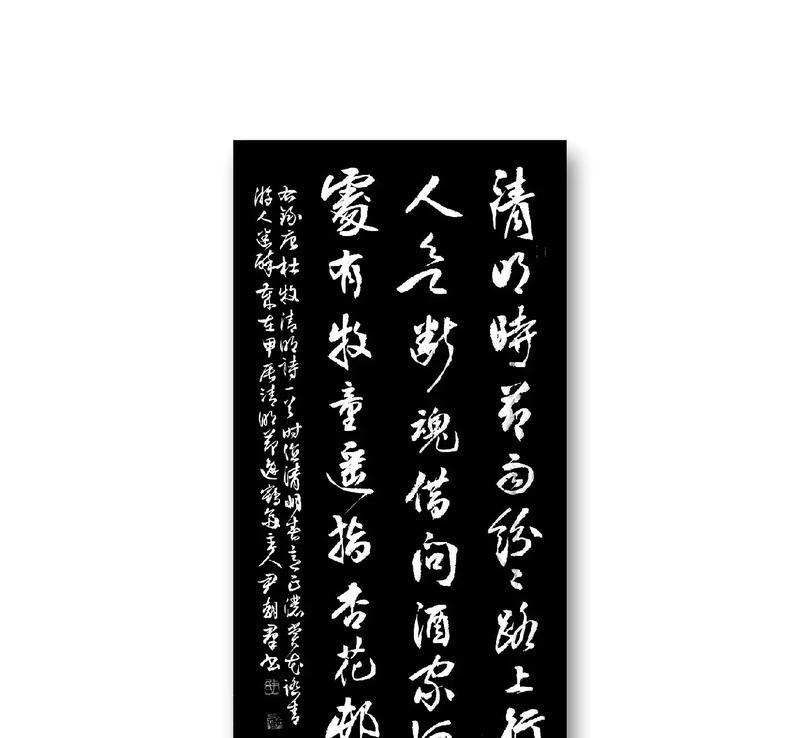 清明時節雨紛々路上行
人欲斷魂借問酒家何
處有牧童遥指杏花邨
右錄唐杜牧清明詩一首时值清明春意正濃賞花踏青
游人迷醉歲在甲辰清明節逸鶴齋主人尹群書